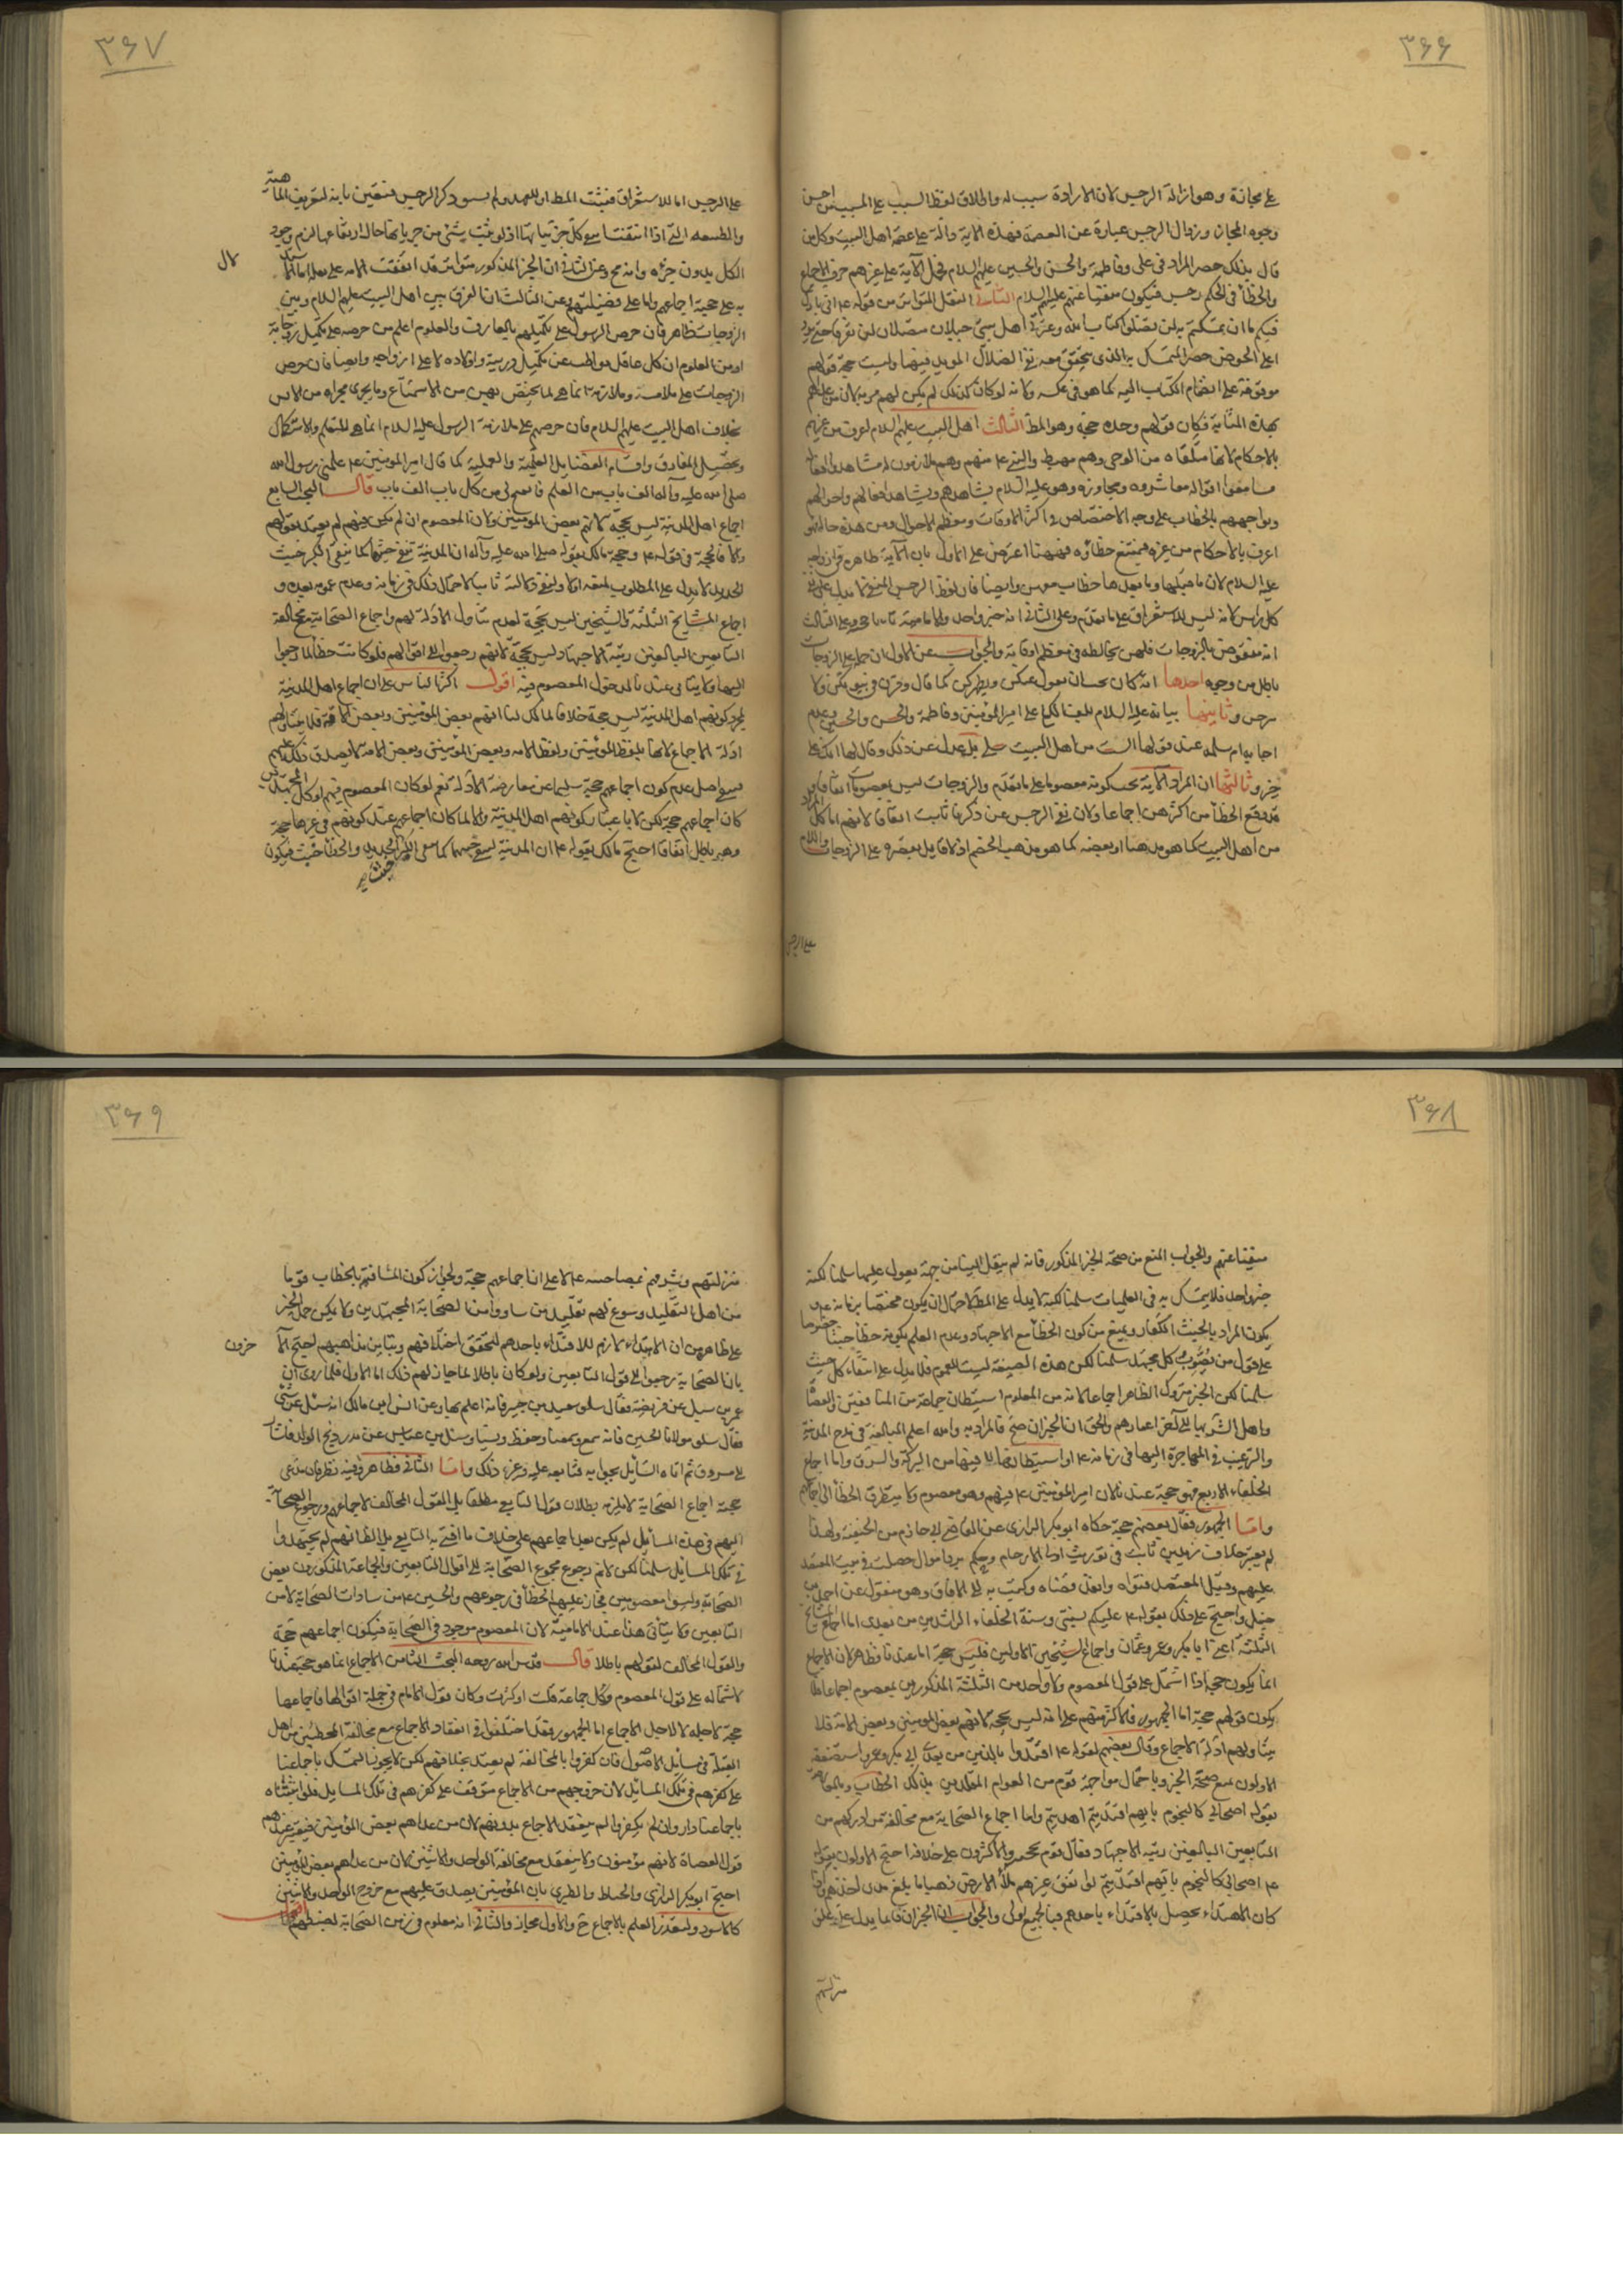 ٣٦٦
على مجازة وهو ازالة الرجس لان الارادة سبب له واطلاق لفظ السبب على المسبب من احسن
وجوه المجاز وزوال الرجس عبارة عن العصمة فهذه الاية دالة على عصمة اهل البيت وكل من
قال بذلك حصر المراد في على وفاطمة والحسن والحسين عليهم السلام الاية على غيرهم خرق الاجماع
والخطأ في الحكم رجس فيكون منفيا عنهم عليهم السلام الثاني النقل المتواتر من قوله ع اني تارك
فيكم ما ان تمسكتم به لن تضلوا كتاب الله وعترتي اهل بيتي حبلان متصلان لن يفترقا حتى يردا
على الحوض حصر المتمسك به الذي يتحقق معه نفي الضلال المؤبد فيهما وليست حجية قولهم
موقوفة على انضمام الكتاب اليه كما هو في عكسه ولانه لو كان كذلك لم يكن لهم مزية لان من عداهم
بهذه المثابة فكان قولهم وحده حجة وهو المط الثالث اهل البيت عليهم السلام اعرف من غيرهم
بالاحكام لانها متلقاة من الوحي وهم مهبطه والنبي ع منهم وهم ملازمون له مشاهدون لافعاله
سامعون اقواله معاشروه ومجاوزه وهو عليه السلام يشاهدهم ويشاهد افعالهم واحوالهم
ويواجههم بالخطاب على وجه الاختصاص في اكثر الاوقات ومعظم الاحوال ومن هذه حاله فهو
اعرف بالاحكام من غيره فيمتنع خطاؤه فههنا اعترض على الاول بان الاية ظاهرة في ازواجه
عليه السلام لان ما قبلها وما بعدها خطاب معهن وايضا فان لفظ الرجس المنفي لا يدل على نفي
كل رجس لانه ليس للاستغراق على ما تقدم وعلى الثاني انه خبر واحد والامامية وعلى الثالث
انه منقوض بالزوجات فلهن مخالطة في معظم اوقاته والجواب عن الاول ان حمله على الزوجات
باطل من وجوه احدها انه كان بحسب ان يقول عنكن ويطهركن كما قال وقرن في بيوتكن ولا
تبرجن وثانيها بيانه عليه السلام بلف الكساء على امير المؤمنين وفاطمة والحسن والحسين وعدم
اجابة ام سلمة عند قولها الست من اهل البيت بل عدل عن ذلك وقال لها انك على
خير وثالثها ان المراد الاية يجب كونه معصوما على ما تقدم والزوجات ليس بمعصومات اتفاقا
قد وقع الخطأ من اكثرهن اجماعا ولان نفي الرجس عمن ذكرنا ثابت اتفاقا لانهم اما كل المراد
من اهل البيت كما هو مذهبنا او بعضه كما هو مذهب الخصم اذ لا قايل بقصره على الزوجات واللام
على الرجس
٣٦٧
على الرجس اما للاستغراق فيثبت المط او للعهد ولم يسبق ذكر الرجس فتعين بانه لتعريف الماهية
والطبيعة التي اذا انتفت انتفى كل جزئياتها اذ لو ثبت شيء من جزئياتها حال ارتفاعها لزم وجود
الكل بدون جزئه وانه مح وعن الثاني ان الخبر المذكور متواتر فقد اتفقت الامة على نقله اما
به على حجية اجماعهم واما على فضيلتهم وعن الثالث انا الفرق بين اهل البيت عليهم السلام وبين
الزوجات ظاهر فان حرص الرسول على تكميلهم بالمعارف والعلوم اعظم من حرصه على تكميل زوجاته
اذ من المعلوم ان كل عاقل مواظب عن تكميل ذريته واولاده لا على ازواجه وايضا فان حرص
الزوجات على ملامسته وملازمته انما هي لما يختص بهن من الاستمتاع وما يجري مجراه من اللاس
بخلاف اهل البيت عليهم السلام فان حرصهم على ملازمة الرسول عليه السلام انما هو للتعلم والاستكمال
وتحصيل المعارف واقسام الفضايل العلمية والعملية كما قال امير المؤمنين ع علمني رسول الله
صلى الله عليه وآله الف باب من العلم فانفتح لي من كل باب الف باب قال البحث السابع
اجماع اهل المدينة ليس بحجة لانهم بعض المؤمنين ولان المعصوم ان لم يكن فيهم لم يعتد بقولهم
والا فالحجة في قوله ع وحجة مالك بقوله صلى الله عليه وآله ان المدينة تنفي خبثها كما ينفي الكير خبث
الحديد لا يدل على المطلوب لضعفه اولا ولنفي دلالته ثانيا لاحتمال ذلك في زمانه وعدم عمومه بعده و
اجماع المشايخ الثلثة والشيخين ليس بحجة لعدم تناول الادلة لهم واجماع الصحابة مع مخالفة
التابعين البالغين رتبة الاجتهاد ليس بحجة لانهم رجعوا الى اقوالهم فلو كانت خطأ لما رجعوا
اليها ولا يتاتى عندنا لدخول المعصوم فيه اقول اكثر الناس على ان اجماع اهل المدينة
لمجرد كونهم اهل المدينة ليس حجة خلافا لمالك لنا انهم بعض المؤمنين وبعض الامة فلا يتناولهم
ادلة الاجماع لانها بلفظ المؤمنين ولفظ الامة وبعض المؤمنين وبعض الامة لا يصدق ذلك عليهم
فيبقى اصل عدم كون اجماعهم حجة سليما عن معارضة الادلة نعم لو كان المعصوم فيهم او كان
كان اجماعهم حجة لكن لا باعتبار كونهم اهل المدينة والا لما كان اجماعهم عند كونهم في غيرها حجة
وهو باطل اتفاقا احتج مالك بقوله ع ان المدينة لتنفي خبثها كما ينفي الكير خبث الحديد والخطأ خبث فيكون
٣٦٨
منفيا عنهم والجواب المنع من صحة الخبر المذكور فانه لم ينقل الينا من جهة يعول عليها سلمنا لكنه
خبر واحد فلا يتمسك به في العلميات سلمنا لكنه لا يدل على المط لاحتمال ان يكون مختصا بزمانه ع و
يكون المراد بالخبث الكفار ويمنع من كون الخطأ مع الاجتهاد وعدم العلم بكونه خطأ خبثا خصوصا
على قول من يصوب كل مجتهد سلمنا لكن هذه الصيغة ليست للعموم فلا يدل على انتفاء كل خبث
سلمنا لكن الخبر متروك الظاهر اجماعا لانه من المعلوم استيطان جماعة من المنافقين والعصاة
واهل الشر بها الى اخر اعمارهم والحق ان الخبر ان صح فالمراد به والله اعلم المبالغة في مدح المدينة
والترغيب في المهاجرة اليها في زمانه ع او استيطانها لما فيها من البركة والشرف واما اجماع
الخلفاء الاربعة فهو حجة عندنا لان امير المؤمنين ع فيهم وهو معصوم ولا يتطرق الخطأ الى اجماعهم
واما الجمهور فقال بعضهم حجة حكاه ابو بكر الرازي عن القاضي ابي حازم من الحنفية ولهذا
لم يعتبر خلاف زيد بن ثابت في توريث اولي الارحام وحكم برد اموال حصلت في بيت المعتضد
عليهم وقبل المعتضد فتواه وانفذ قضاه وكتب به الى الافاق وهو منقول عن احمد بن
حنبل واحتج على ذلك بقوله ع عليكم بسنتي وسنة الخلفاء الراشدين من بعدي اما اجماع المشايخ
الثلثة اعني ابا بكر وعمر وعثمان واجماع الشيخين الاولين فليس حجة اما عندنا فظاهر لان الاجماع
انما يكون حجة اذا اشتمل على قول المعصوم ولا واحد من الثلثة المذكورين بمعصوم اجماعا فلا
يكون قولهم حجة اما الجمهور فالاكثر منهم على انه ليس بحجة لانهم بعض المؤمنين وبعض الامة فلا
يتناولهم ادلة الاجماع وقال بعضهم لقوله ع اقتدوا باللذين من بعدي ابي بكر وعمر واستضعفه
الاولون بمنع صحة الخبر وباحتمال مواجهة قوم من العوام المقلدين بذلك الخطاب وبالمعارضة
بقوله اصحابي كالنجوم بايهم اقتديتم اهتديتم واما اجماع الصحابة مع مخالفة من ادركهم من
التابعين البالغين رتبة الاجتهاد فقال قوم بحجيته والاكثرون على خلافه احتج الاولون بقوله
ع اصحابي كالنجوم بايهم اقتديتم لو انفق غيرهم ملأ الارض ذهبا ما بلغ مد احدهم واذا
كان الاهتداء يحصل بالاقتداء باحدهم فبالجميع اولى والجواب ان الخبران فانما يدل على علو
منزلتهم
٣٦٩
منزلتهم وشرفهم بمصاحبته ع لا على ان اجماعهم حجة ولجواز كون المشافهين بالخطاب قوما
من اهل التقليد وسوغ لهم تقليد من سادوا من الصحابة المجتهدين ولا يمكن حمل الخبر
على ظاهره من ان الاهتداء لازم للاقتداء باحدهم لتحقق اختلافهم وتباين مذاهبهم احتج الآ
خرون
بان الصحابة رجعوا الى قول التابعين ولو كان باطلا لما جاز لهم ذلك اما الاول فلما روى ان
عمر بن سئل عن فريضة فقال سلوا سعيد بن جبير فانه اعلم بها وعن انس بن مالك انه سئل عن شيء
فقال سلوا مولانا الحسن فانه سمع وسمعنا وحفظ ونسينا وسئل ابن عباس عن نذر ذبح الولد فاشار
الى مسروق ثم اتاه السائل بجوابه فتابعه عليه وغير ذلك واما الثاني فظاهر وفيه نظر فان مدعي
حجية اجماع الصحابة لا يلزمه بطلان قول التابعي مطلقا بل القول المخالف لاجماعهم ورجوع الصحابة
اليهم في هذه المسائل لم يكن بعد اجماعهم على خلاف ما افتى به التابعي بل الظاهر انهم لم يجتهدوا
في تلك المسائل سلمنا لكن لا نم رجوع مجموع الصحابة الى اقوال التابعين والجماعة المذكورون بعض
الصحابة وليسوا معصومين فجاز عليهم الخطأ في رجوعهم والحسين ع من سادات الصحابة لا من
التابعين ولا يتاتى هذا عند الامامية لان المعصوم موجود في الصحابة فيكون اجماعهم حجة
والقول المخالف لقولهم باطلا قال قدس الله روحه البحث الثامن الاجماع انما هو حجة عندنا
لاشتماله على قول المعصوم وكل جماعة قلت او كثرت وكان قول الامام في جملة اقوالها فاجماعها
حجة لاجله لا لاجل الاجماع اما الجمهور فقد اختلفوا في انعقاد الاجماع مع مخالفة المخطئين من اهل
القبلة في مسائل الاصول فان كفروا بالمخالفة لم يعتد بخلافهم لكن لا يجوز التمسك باجماعنا
على كفرهم في تلك المسائل لان خروجهم من الاجماع متوقف على كفرهم في تلك المسائل فلو اثبتناه
باجماعنا دار وان لم يكفروا لم ينعقد الاجماع بدونهم لان من عداهم بعض المؤمنين ويعتبر عندهم
قول العصاة لانهم مؤمنون ولا ينعقد مع مخالفة الواحد والاثنين لان من عداهم بعض المؤمنين
احتج ابو بكر الرازي والخياط والطبري بان المؤمنين يصدق عليهم مع خروج الواحد والاثنين
كالاسود ولتعذر العلم بالاجماع ح والاول مجاز والثاني انه معلوم في زمن الصحابة لضبطهم